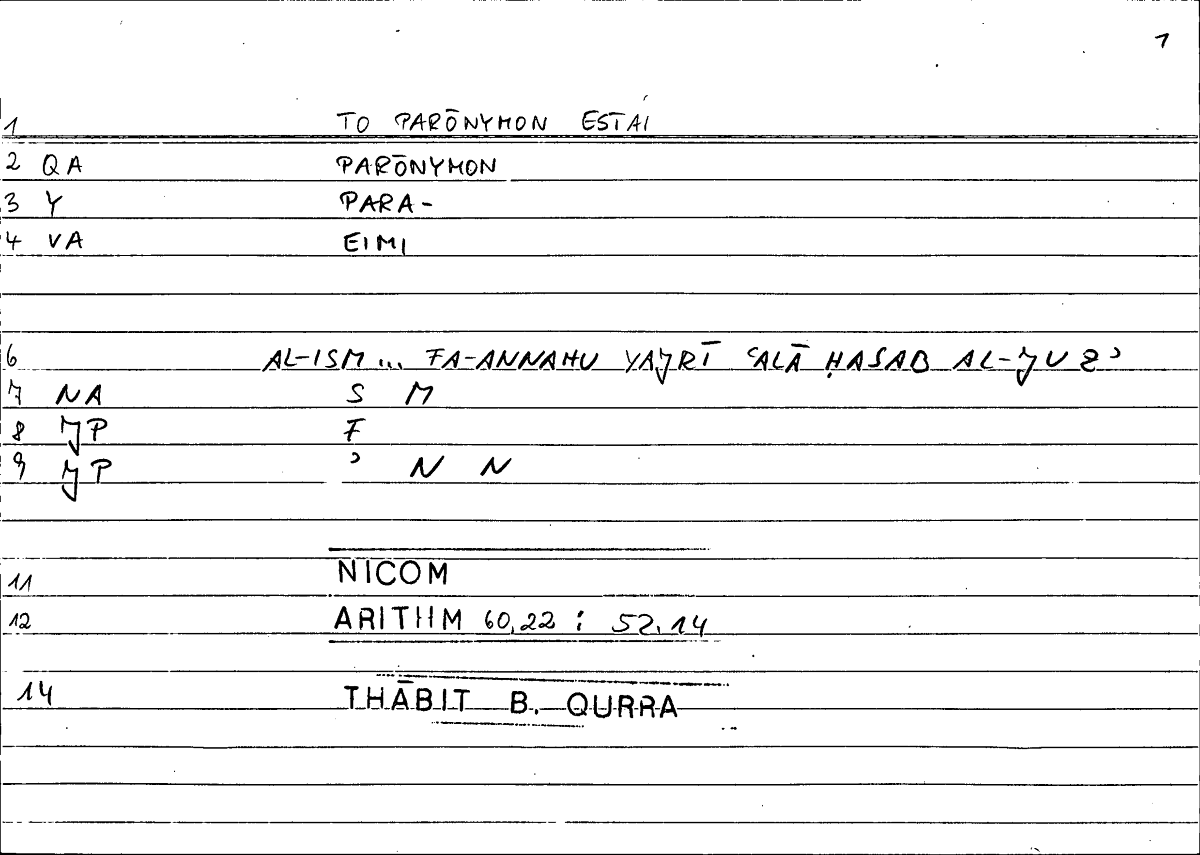 1
1 TO PARŌNYMON ESTAI
2 QA PARŌNYMON
3 Y PARA-
4 VA EIMI
6 AL-ISM... FA-ANNAHU YAJRĪ ʿALĀ ḤASAB AL-JUZʾ
7 NA S M
8 JP F
9 JP ʾ N N
11 NICOM
12 ARITHM 60,22 : 52.14
14 THĀBIT B. QURRA